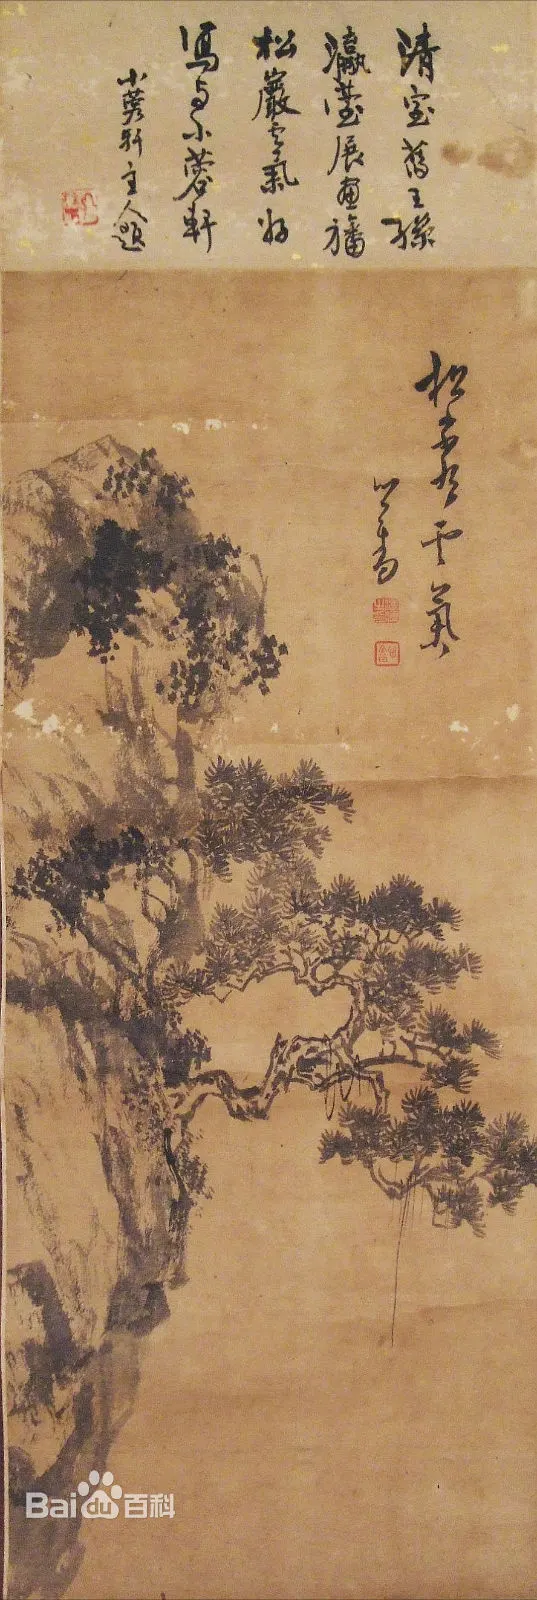 清室舊王孫
瀛臺展畫旛
松巖雲氣
寫与小蓉軒
小蓉軒主人題
松雲氣
心畬
Baidu百科